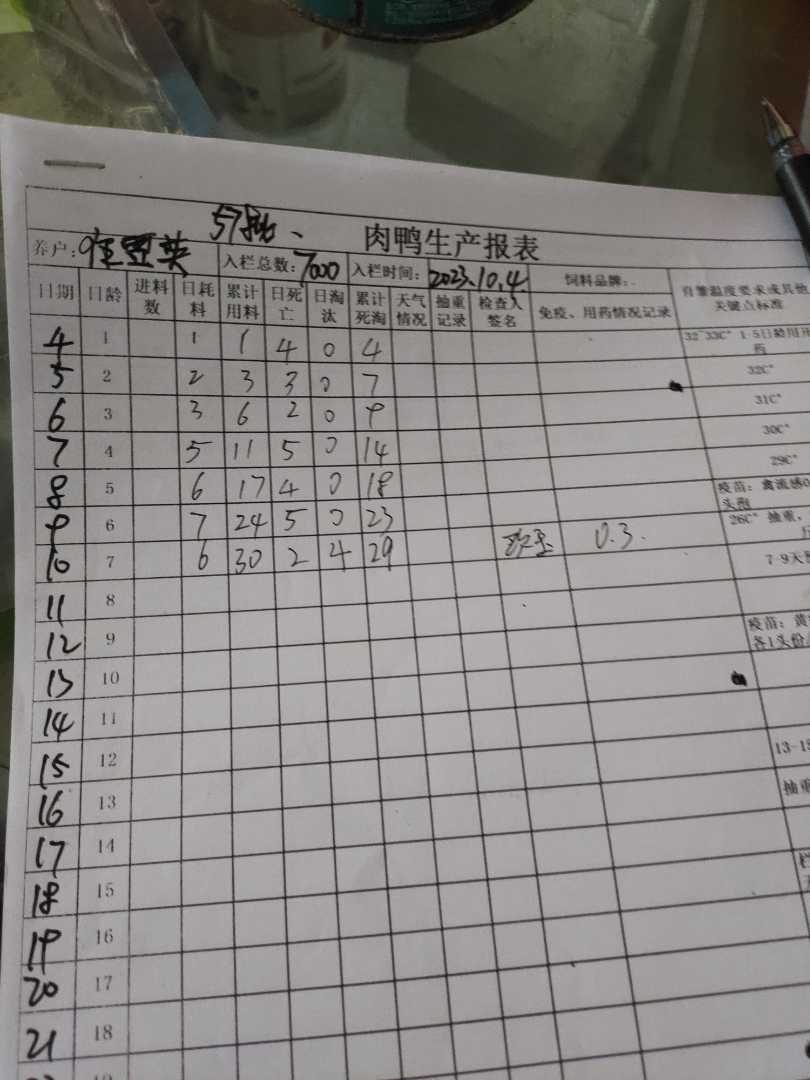 57批、 肉鸭生产报表
养户: 入栏总数:7000 入栏时间:2023.10.4 饲料品牌:
日期 日龄 进料数 日耗料 累计用料 日死亡 日淘汰 累计死淘 天气情况 抽重记录 检查人签名 免疫、用药情况记录 育雏温度要求或其他关键点标准
4 1 1 1 4 0 4 32-33C° 1-5日龄用开 药
5 2 2 3 3 0 7 32C°
6 3 3 6 2 0 9 31C°
7 4 5 11 5 0 14 30C°
8 5 6 17 4 0 18 29C° 疫苗:禽流感0 头孢
9 6 7 24 5 0 23 26C° 抽重,
10 7 6 30 2 4 29 0.3. 7-9天
11 8
12 9 疫苗:黄 各1头份
13 10
14 11
15 12 13-15
16 13 抽重
17 14
18 15
19 16
20 17
21 18